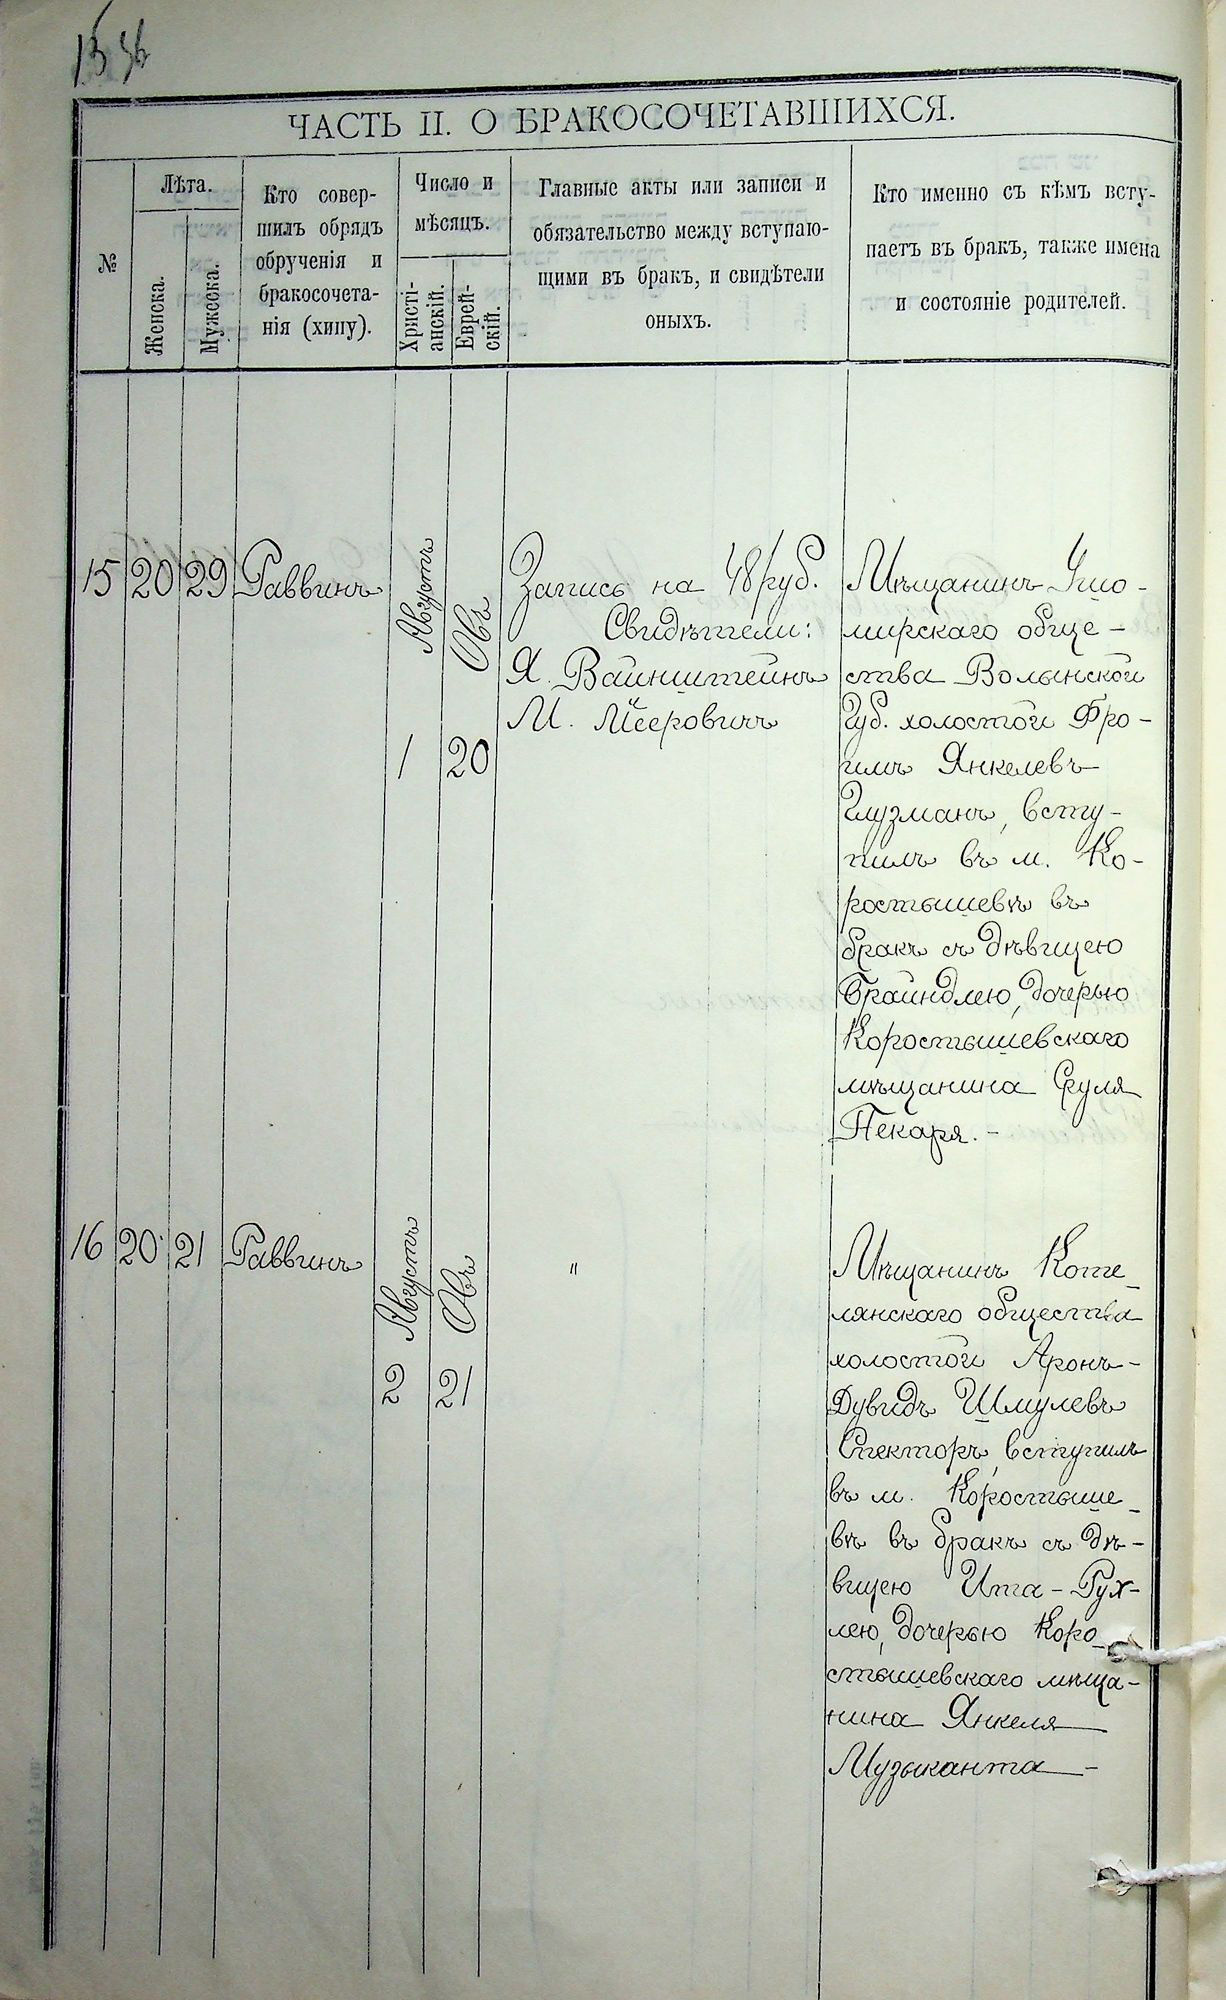 ЧАСТЬ II. О БРАКОСОЧЕТАВШИХСЯ.
№
Лѣта.
Женска.
Мужеска.
Кто совер-
шилъ обрядъ
обрученія и
бракосочета-
нія (хипу).
Число и
мѣсяцъ.
Христі-
анскій.
Еврей-
скій.
Главные акты или записи и
обязательство между вступаю-
щими въ бракъ, и свидѣтели
оныхъ.
Кто именно съ кѣмъ всту-
паетъ въ бракъ, также имена
и состояніе родителей.
15
20
29
Раввинъ
Августъ
1
Овъ
20
Запись на 48 руб.
Свидѣтели:
Я. Вайнштейнъ
М. Мееровичъ
Мѣщанинъ Ушо-
мирскаго обще-
ства Волынской
Губ. холостой Фро-
имъ Янкелевъ
Глузманъ, всту-
пилъ въ м. Ко-
ростышевѣ въ
бракъ съ дѣвицею
Браиндлею, дочерью
Коростышевскаго
мѣщанина Сруля
Пекаря. -
16
20
21
Раввинъ
Августъ
2
Овъ
21
"
Мѣщанинъ Коте-
лянскаго общества
холостой Аронъ-
Дувидъ Шмулевъ
Спекторъ, вступилъ
въ м. Коростыше-
вѣ въ бракъ съ дѣ-
вицею Ита-Рух-
лею, дочерью Коро-
стышевскаго мѣща-
нина Янкеля
Музыканта -